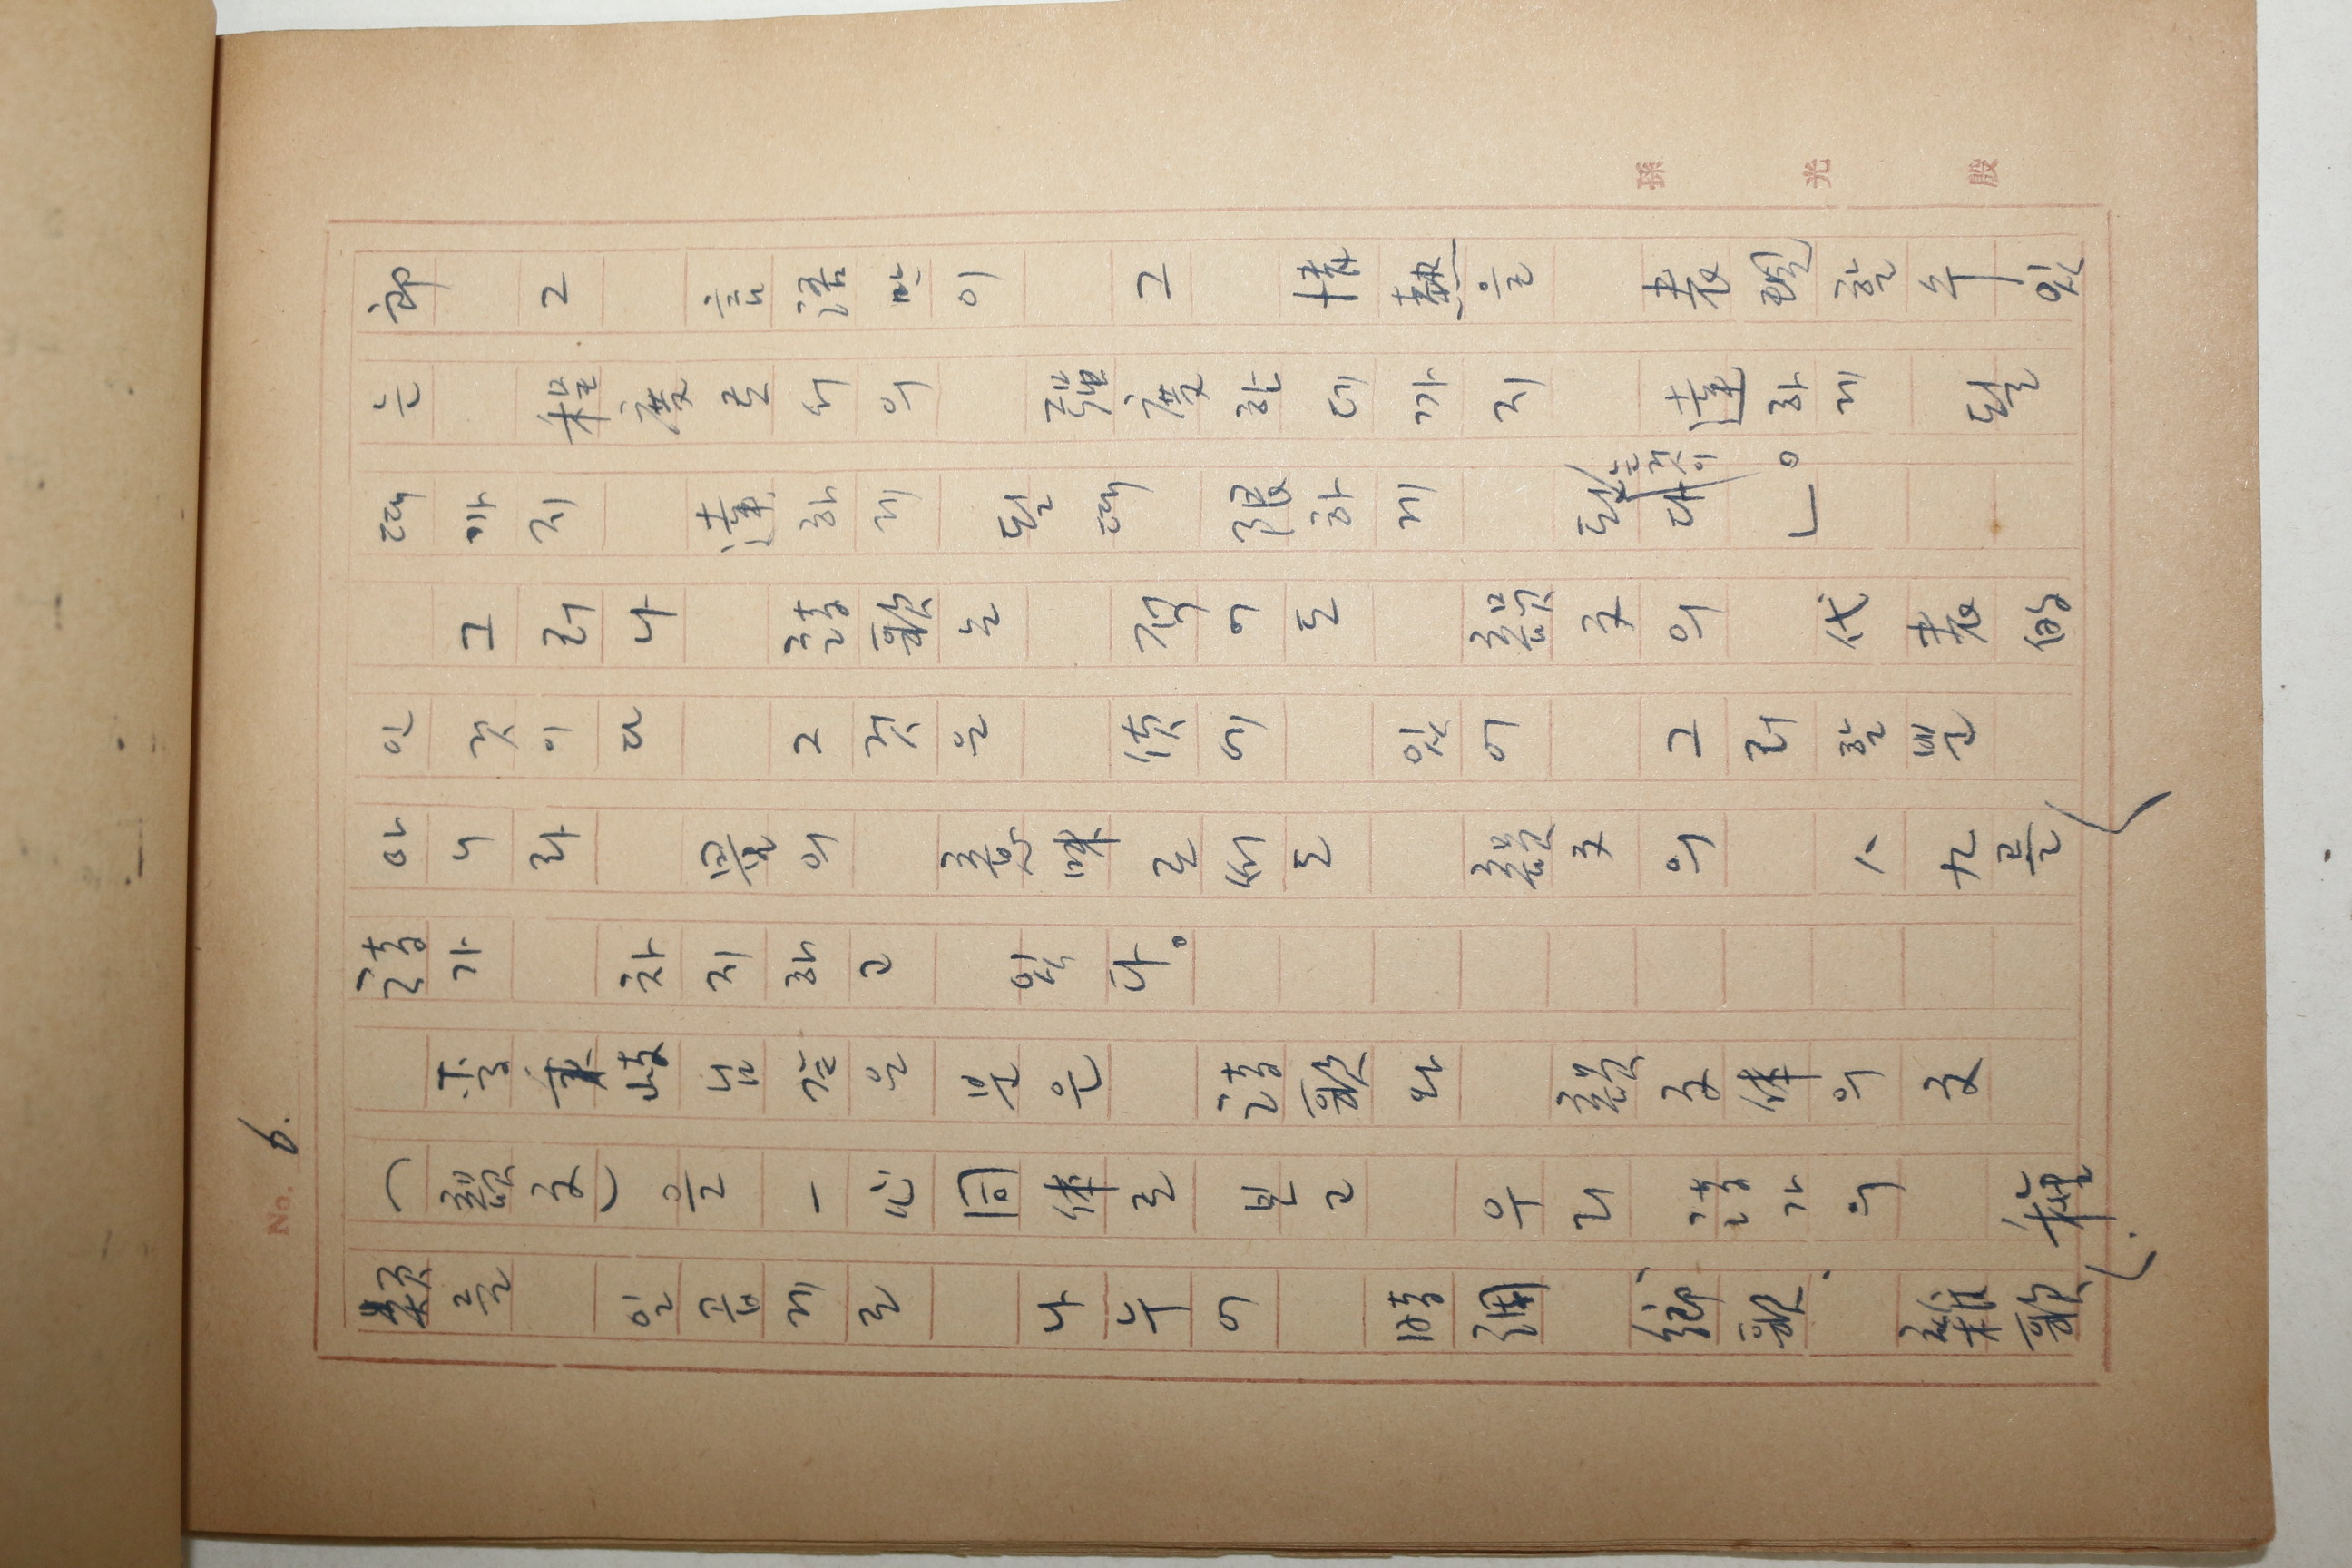 No. 6.
郎 그 言語만이 그 情熱을 表現할수있
는 程度로서의 强度한데까지 達하게 될
때까지 達하게 될때 限하게 된다」。
는것이
그러나 詩歌는 적어도 韻文의 代表的
인것이다 그것은 质에 있어 그러할뿐
아니라 量의 意味로써도 韻文의 八九를
詩가 차지하고 있다。
李秉岐님같은분은 詩歌와 韻文体의文
(韻文)을 一心同体로 보고 우리 詩가의 種
類를 일곱게로 나누어 時調 鄕歌、雜歌、
孫光殷